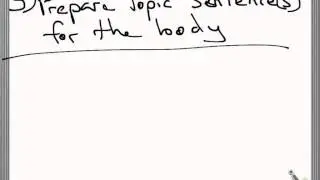 3) Prepare topic sentence(s)
for the body